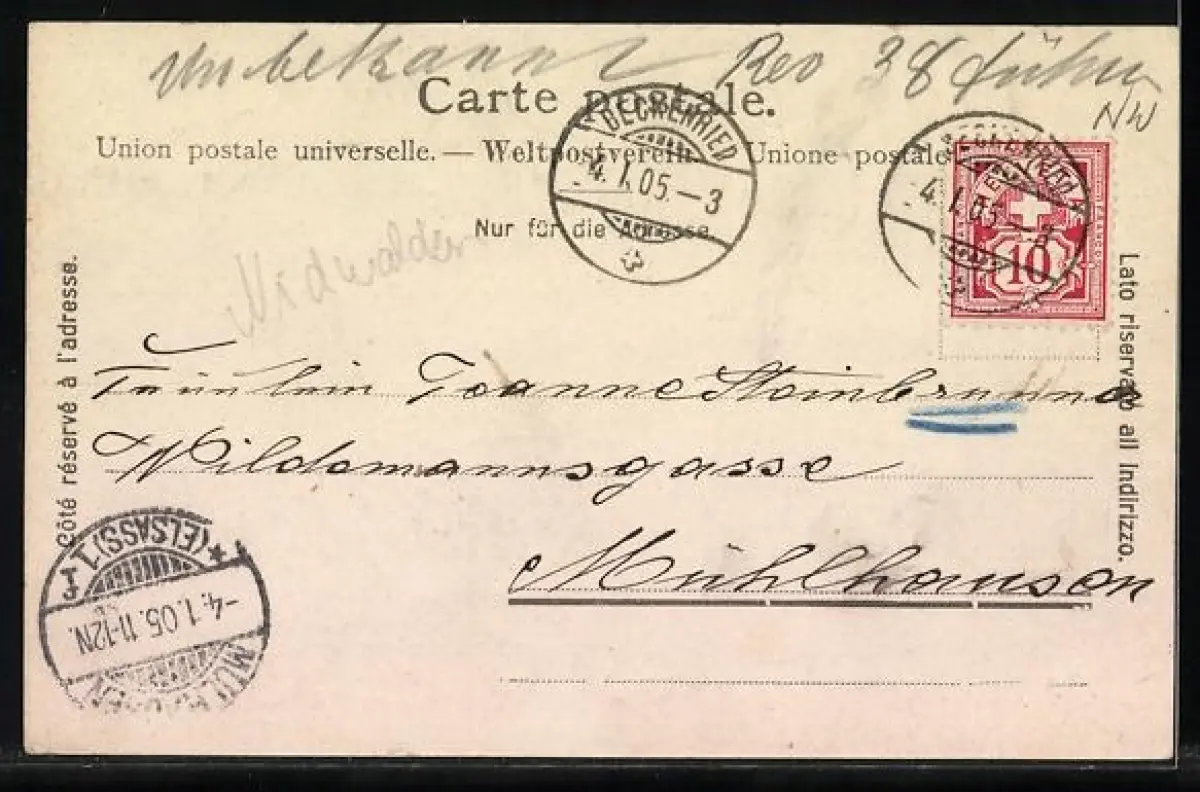 Unbekannt Rev 38
NW
Carte postale.
Union postale universelle. — Weltpostverein. Unione postale
BECKENRIED
-4.I.05.-3
BECKENRIED
-4.I.05.-3
10
Nur für die Adresse
Nidwalden
Côté réservé à l'adresse.
Lato riservato all Indirizzo.
Fräulein Joanne Steinbrunner
Wildemannsgasse
Mühlhausen
MÜLHAUSEN
-4.1.05.11-12N.
* (ELSASS) 1